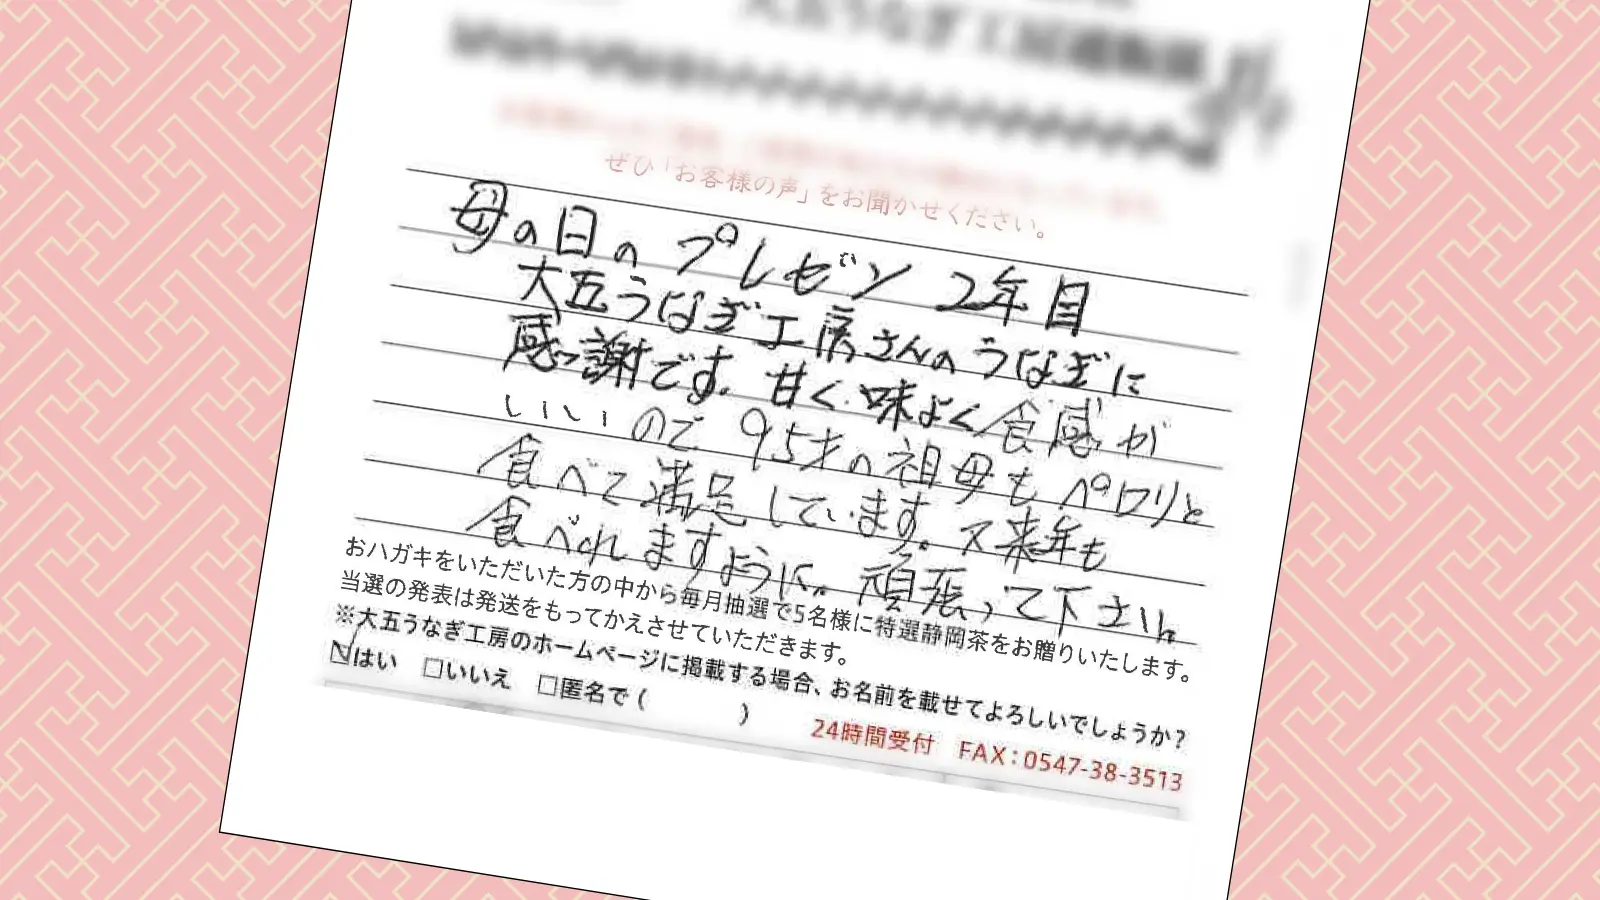 大五うなぎ工房通販部
ぜひ「お客様の声」をお聞かせください。
母の日のプレゼン 2年目
大五うなぎ工房さんのうなぎに
感謝です。甘く味よく食感が
いいので95才の祖母もペロリと
食べて満足しています。又来年も
食べれますように。頑張って下さい
おハガキをいただいた方の中から毎月抽選で5名様に特選静岡茶をお贈りいたします。
当選の発表は発送をもってかえさせていただきます。
※大五うなぎ工房のホームページに掲載する場合、お名前を載せてよろしいでしょうか?
☑はい □いいえ □匿名で( )
24時間受付 FAX:0547-38-3513